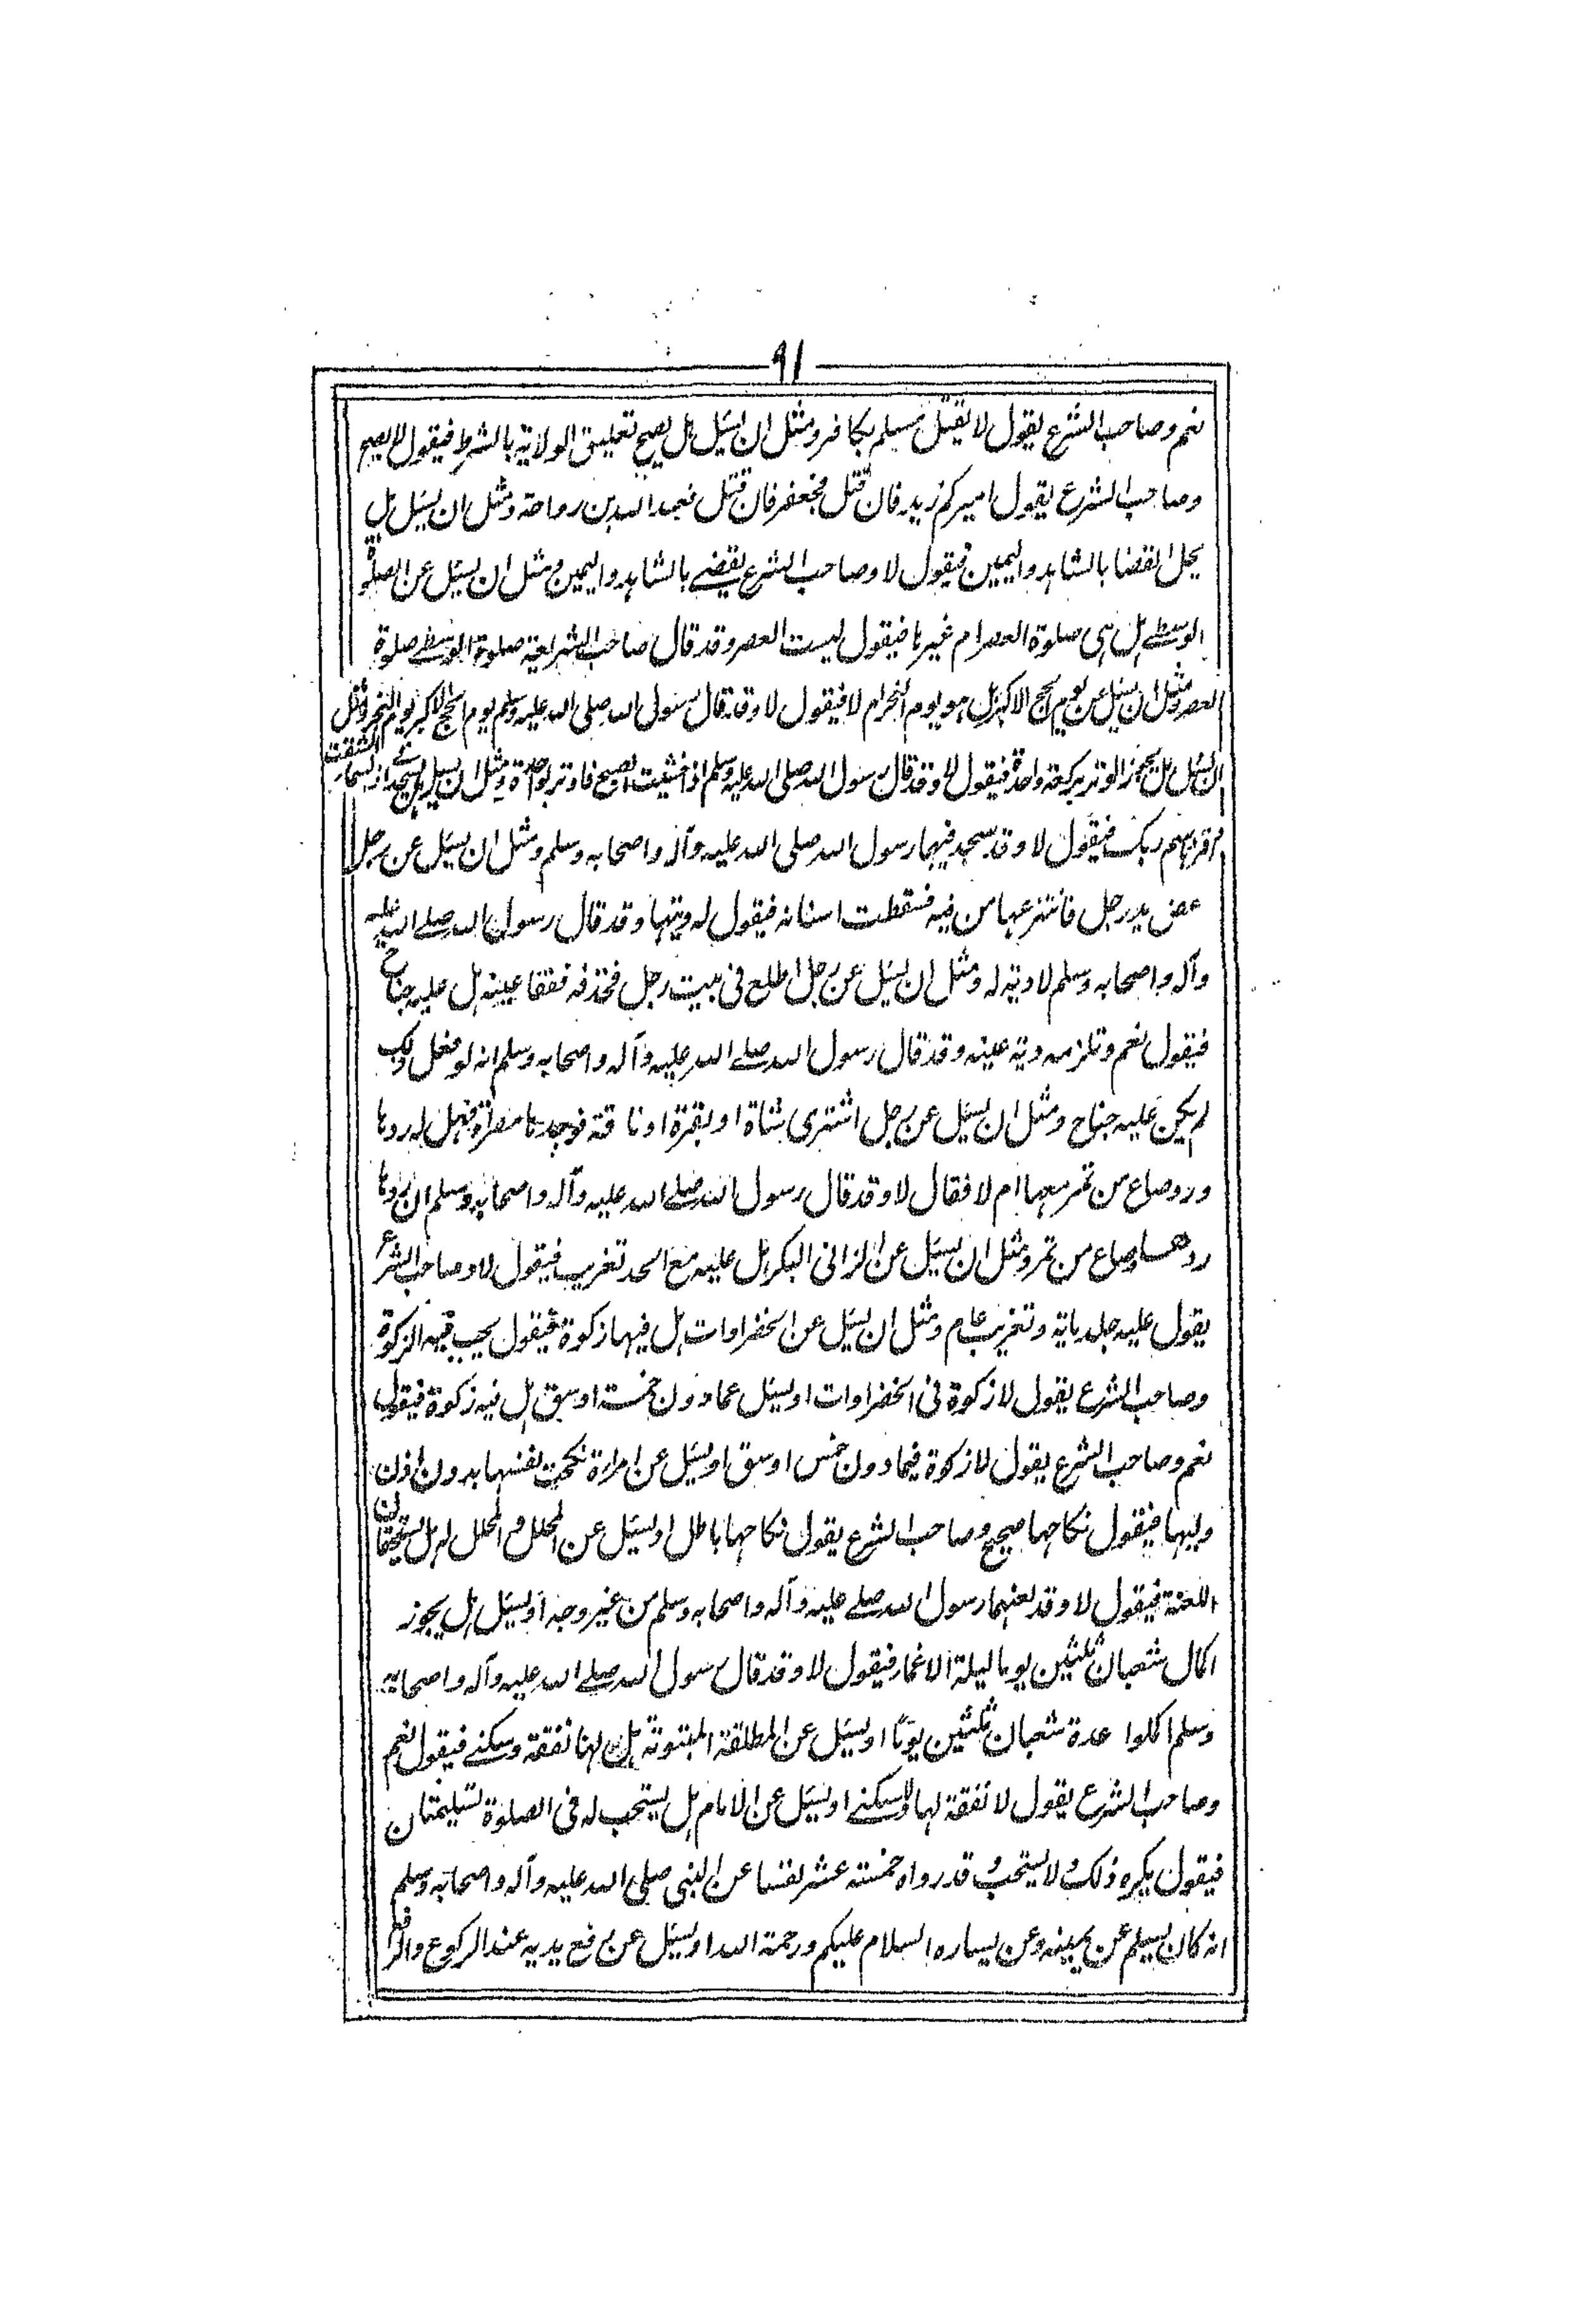 ٩١
نعم وصاحب الشرع يقول لا يقتل مسلم بكافر ومثل ان يسئل هل يصح تعليق الولاية بالشرط فيقول لا يصح
وصاحب الشرع يقول اميركم زيد فان قتل فجعفر فان قتل فعبد الله بن رواحة ومثل ان يسئل هل
يحل القضا بالشاهد واليمين فيقول لا وصاحب الشرع يقضے بالشاهد واليمين ومثل ان يسئل عن الصلوة
الوسطے هل هى صلوة العصر ام غيرها فيقول ليست العصر وقد قال صاحب الشريعة صلوة الوسطے صلوة
العصر ومثل ان يسئل عن يوم الحج الاكبر هل هو يوم النحر ام لا فيقول لا وقد قال رسول الله صلى الله عليه وسلم يوم الحج الاكبر يوم النحر ومثل
ان يسئل هل يجوز الوتر بركعة واحدة فيقول لا وقد قال رسول الله صلى الله عليه وسلم اذا خشيت الصبح فاوتر بواحدة ومثل ان يسئل هل يسجد فے اذا السماء انشقت
واقرا باسم ربك فيقول لا وقد سجد فيهما رسول الله صلى الله عليه وآله واصحابه وسلم ومثل ان يسئل عن رجل
عض يد رجل فانتزعها من فيه فسقطت اسنانه فيقول له ديتها وقد قال رسول الله صلے الله عليه
وآله واصحابه وسلم لا دية له ومثل ان يسئل عن رجل اطلع فى بيت رجل فخذفه ففقا عينه هل عليه جناح
فيقول نعم وتلزمه دية عينه وقد قال رسول الله صلے الله عليه وآله واصحابه وسلم انه لو فعل ذلك
لم يكن عليه جناح ومثل ان يسئل عن رجل اشترى شاة او بقرة او ناقة فوجدها مصراة فهل له ردها
ورد صاع من تمر معها ام لا فقال لا وقد قال رسول الله صلے الله عليه وآله واصحابه وسلم ان ردها
ردها وصاع من تمر ومثل ان يسئل عن الزانى البكر هل عليه مع الحد تغريب فيقول لا وصاحب الشرع
يقول عليه جلد ماية وتغريب عام ومثل ان يسئل عن الخضراوات هل فيها زكوة فيقول يجب فيه الزكوة
وصاحب الشرع يقول لا زكوة فى الخضراوات او يسئل عما دون خمسة اوسق هل فيه زكوة فيقول
نعم وصاحب الشرع يقول لا زكوة فيما دون خمس اوسق او يسئل عن امراة نكحت نفسها بدون اذن
وليها فيقول نكاحها صحيح وصاحب الشرع يقول نكاحها باطل او يسئل عن المحلل والمحلل له هل يستحقان
اللعنة فيقول لا وقد لعنهما رسول الله صلے عليه وآله واصحابه وسلم من غير وجه او يسئل هل يجوز
اكمال شعبان ثلثين يوما ليلة الاغمار فيقول لا وقد قال رسول الله صلے الله عليه وآله واصحابه
وسلم اكملوا عدة شعبان ثلثين يوما او يسئل عن المطلقة المبتوتة هل لها نفقة وسكنے فيقول نعم
وصاحب الشرع يقول لا نفقة لها ولا سكنے او يسئل عن الامام هل يستحب له فى الصلوة تسليمتان
فيقول يكره ذلك ولا يستحب وقد رواه خمسة عشر نفسا عن النبى صلى الله عليه وآله واصحابه وسلم
انه كان يسلم عن يمينه وعن يساره السلام عليكم ورحمة الله او يسئل عن رفع يديه عند الركوع والرفع